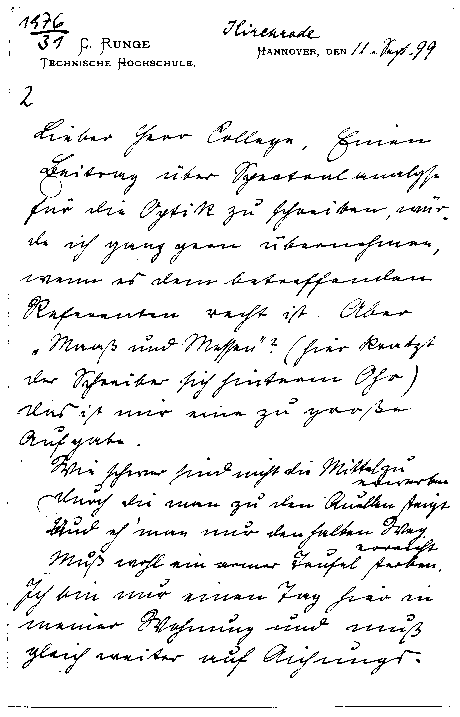 1976
31
C. RUNGE
TECHNISCHE HOCHSCHULE.
Kirchrode
HANNOVER, DEN 11. Sept. 99
2
Lieber Herr College, Einen
Beitrag über Spectralanalyse
für die Optik zu schreiben, wür-
de ich ganz gern übernehmen,
wenn es dem betreffenden
Referenten recht ist. Aber
„Maaß und Messen"? (hier kratzt
der Schreiber sich hinterm Ohr)
das ist mir eine zu große
Aufgabe.
Wie schwer sind nicht die Mittel zu
erwerben
Durch die man zu den Quellen steigt
Und eh' man nur den halben Weg
erreicht
Muß wohl ein armer Teufel sterben.
Ich bin nur einen Tag hier in
meiner Wohnung und muß
gleich weiter auf Aichungs-